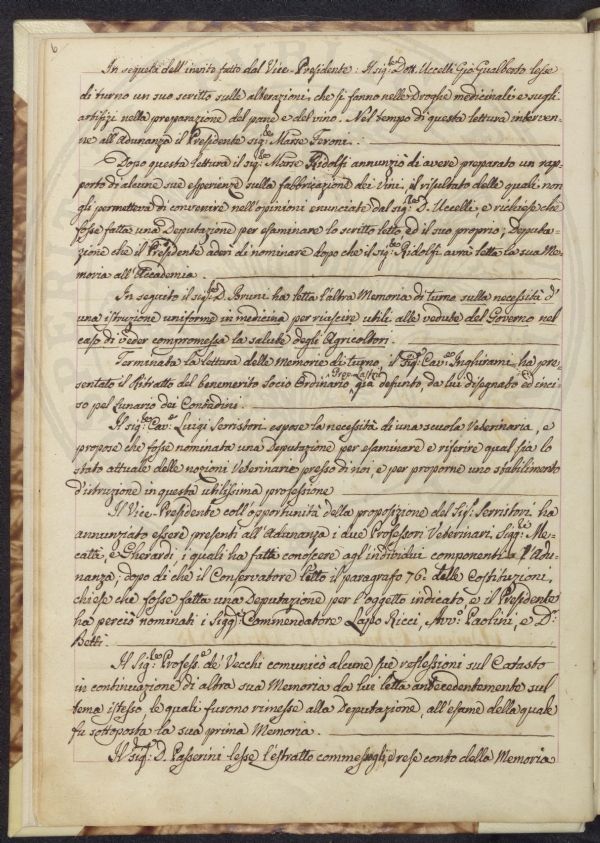 6
In sequela dell'invito fatto dal Vice-Presidente: Il sig.r Dott. Uccelli Gio. Gualberto lesse
di turno un suo scritto sulle alterazioni, che si fanno nelle Droghe medicinali e sugli
artifizi nella preparazione del pane e del vino. Nel tempo di questa lettura interven-
ne all'Adunanza il Presidente sig.re Marse Feroni.
Dopo questa lettura il sig.re Marse Ridolfi annunziò di avere preparato un rap-
porto di alcune sue esperienze sulla fabbricazione dei Vini, il risultato delle quali non
gli permetteva di convenire nell'opinioni enunciate dal sig.re D. Uccelli, e richiese che
fosse fatta una Deputazione per esaminare lo scritto letto, ed il suo proprio; Deputa-
zione che il Presidente aderì di nominare dopo che il sig.re Ridolfi avrà letta la sua Me-
moria all'Accademia.
In seguito il sig.re D. Bruni ha letta l'altra Memoria di turno sulla necessità d'
una istruzione uniforme in medicina per riuscire utili alle vedute del Governo nel
caso di veder compromessa la salute degli Agricoltori.
Terminata la lettura delle Memorie di turno il Sig.r Cav.re Inghirami ha pre-
sentato il Ritratto del benemerito Socio Ordinario, Prop. Lastri già defunto, da lui disegnato ed inci-
so pel Lunario dei Contadini.
Il sig.re Cav.e Luigi Serristori espose la necessità di una scuola Veterinaria, e
propose che fosse nominata una Deputazione per esaminare e riferire qual sia lo
stato attuale delle nozioni Veterinarie presso di noi, e per proporne uno stabilimento
d'istruzione in questa utilissima professione
Il Vice-Presidente coll'opportunità della proposizione del Sig.r Serristori ha
annunziato essere presenti all'Adunanza i due Professori Veterinari Sigg.ri Me-
cattè, e Gherardi i quali ha fatti conoscere agl'individui componenti l'Adu-
nanza; dopo di che il Conservatore letto il paragrafo 76. delle Costituzioni,
chiese che fosse fatta una Deputazione per l'oggetto indicato, e il Presidente
ha perciò nominati i Sigg.ri Commendatore Lapo Ricci, Avv.o Paolini, e D.r
Betti.
Il Sig.re Profess.e de' Vecchi comunicò alcune sue reflessioni sul Catasto
in continuazione di altra sua Memoria da lui letta antecedentemente sul
tema istesso le quali furono rimesse alla Deputazione, all'esame della quale
fu sottoposta la sua prima Memoria.
Il sig.r D. Passerini lesse l'estratto commessogli, e rese conto della Memoria